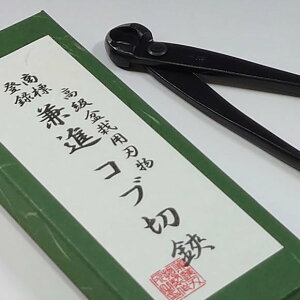 登録商標
高級盆栽用刃物
兼進コブ切鋏